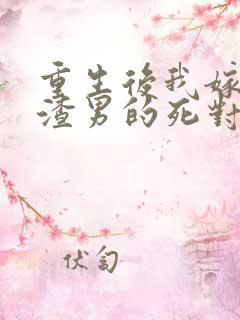 重生後我嫁
渣男的死對
伏匄